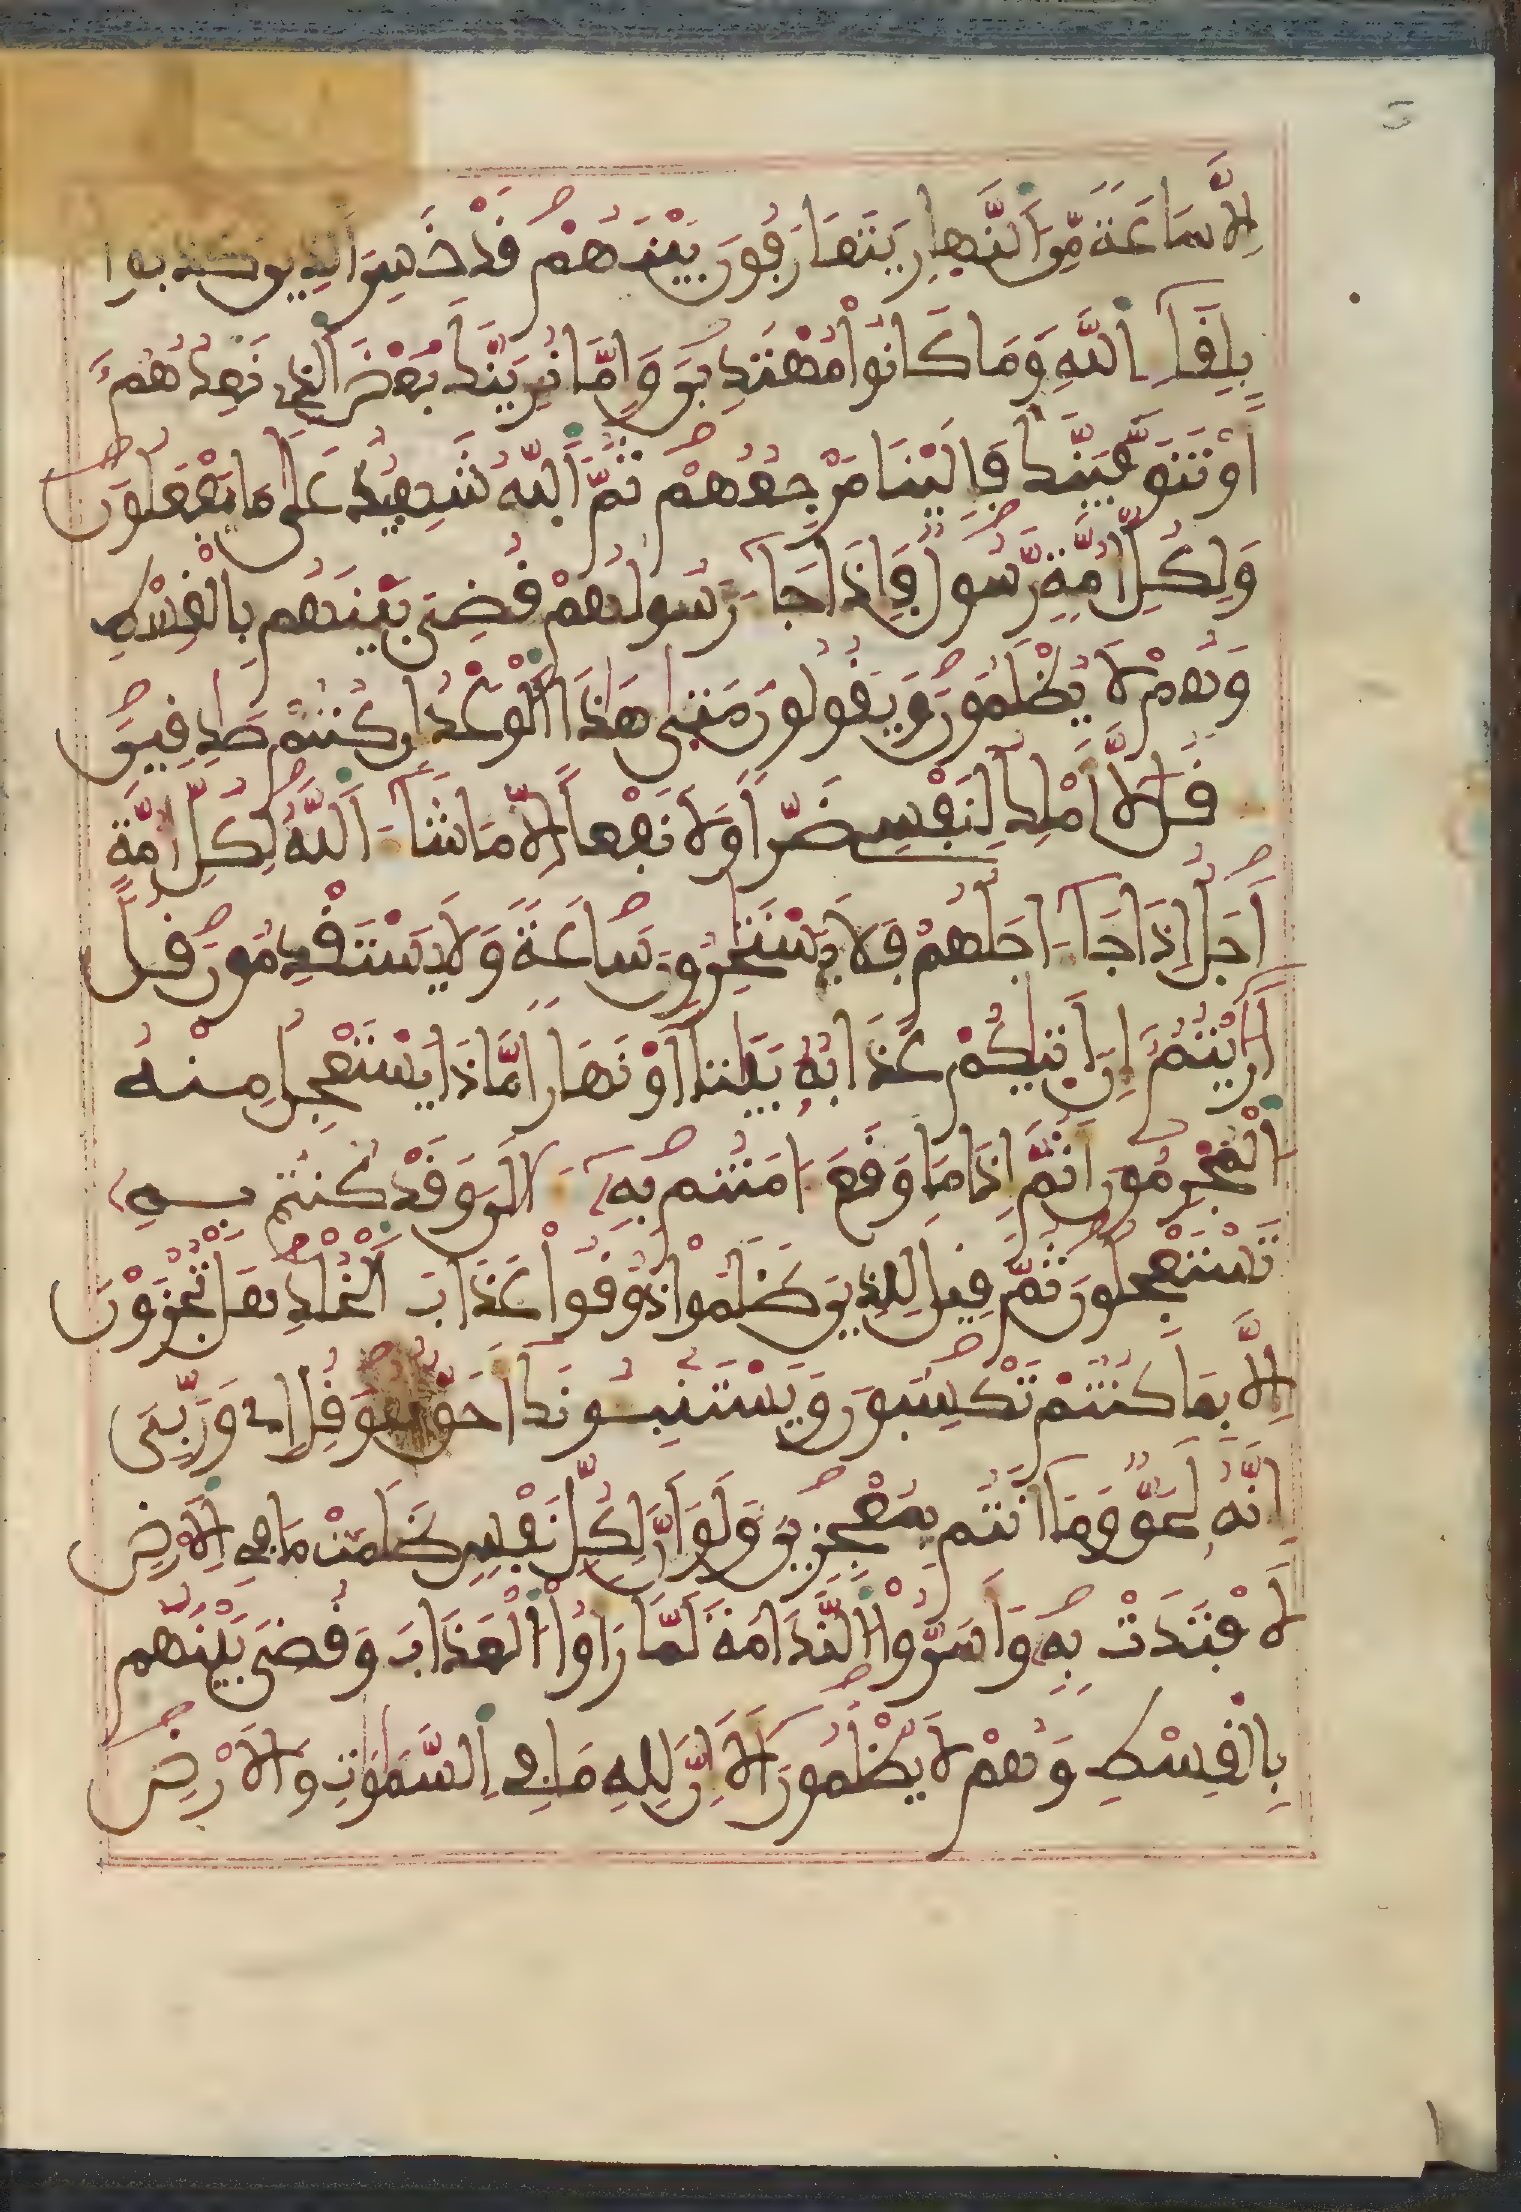 إِلَّا سَاعَةً مِّنَ اَلنَّهِارِ يَتَعَارَفُونَ بَيْنَهُمْ قَدْ خَسِرَ اَلذِينَ كَذَّبُواْ
بِلِقَآءِ اِللَّهِ وَمَا كَانُواْ مُهْتَدِينَ وَإِمَّا نُرِيَنَّكَ بَعْضَ اَلذِى نَعِدُهُمُۥٓ
أَوْ نَتَوَفَّيَنَّكَ فَإِلَيْنَا مَرْجِعُهُمْ ثُمَّ اَللَّهُ شَهِيدٌ عَلَىٰ مَا يَفْعَلُونَ
وَلِكُلِّ أُمَّةٍ رَّسُولٌ فَإِذَا جَآءَ رَسُولُهُمْ قُضِىَ بَيْنَهُم بِالْقِسْطِ
وَهُمْ لَا يُظْلَمُونَ وَيَقُولُونَ مَتَىٰ هَٰذَا اَلْوَعْدُ إِن كُنتُمْ صَٰدِقِينَ
قُل لَّا أَمْلِكُ لِنَفْسِے ضَرّاً وَلَا نَفْعاً إِلَّا مَا شَآءَ اَللَّهُ لِكُلِّ أُمَّةٍ
أَجَلٌ إِذَا جَآءَ اجَلُهُمْ فَلَا يَسْتَٰخِرُونَ سَاعَةً وَلَا يَسْتَقْدِمُونَ قُلَ
اَرَٰٓيْتُمُۥٓ إِنَ اَتَىٰكُمْ عَذَابُهُۥ بَيَٰتًا أَوْ نَهَاراً مَّاذَا يَسْتَعْجِلُ مِنْهُ
اُلْمُجْرِمُونَ أَثُمَّ إِذَا مَا وَقَعَ ءَامَنتُم بِهِۦٓ ءَآلَٰنَ وَقَدْ كُنتُم بِهِۦ
تَسْتَعْجِلُونَ ثُمَّ قِيلَ لِلذِينَ ظَلَمُواْ ذُوقُواْ عَذَابَ اَلْخُلْدِ هَلْ تُجْزَوْنَ
إِلَّا بِمَا كُنتُمْ تَكْسِبُونَ وَيَسْتَنۢبِـُٔونَكَ أَحَقٌّ هُوَ قُلِ اِے وَرَبِّىَ
إِنَّهُۥ لَحَقٌّ وَمَا أَنتُم بِمُعْجِزِينَ وَلَوَ اَنَّ لِكُلِّ نَفْسٍ ظَلَمَتْ مَا فِے اِلَارْضِ
لَافْتَدَتْ بِهِۦ وَأَسَرُّواْ اُلنَّدَامَةَ لَمَّا رَأَوُاْ اُلْعَذَابَ وَقُضِىَ بَيْنَهُم
بِالْقِسْطِ وَهُمْ لَا يُظْلَمُونَ أَلَا إِنَّ لِلهِ مَا فِے اِلسَّمَٰوَٰتِ وَالَارْضِ